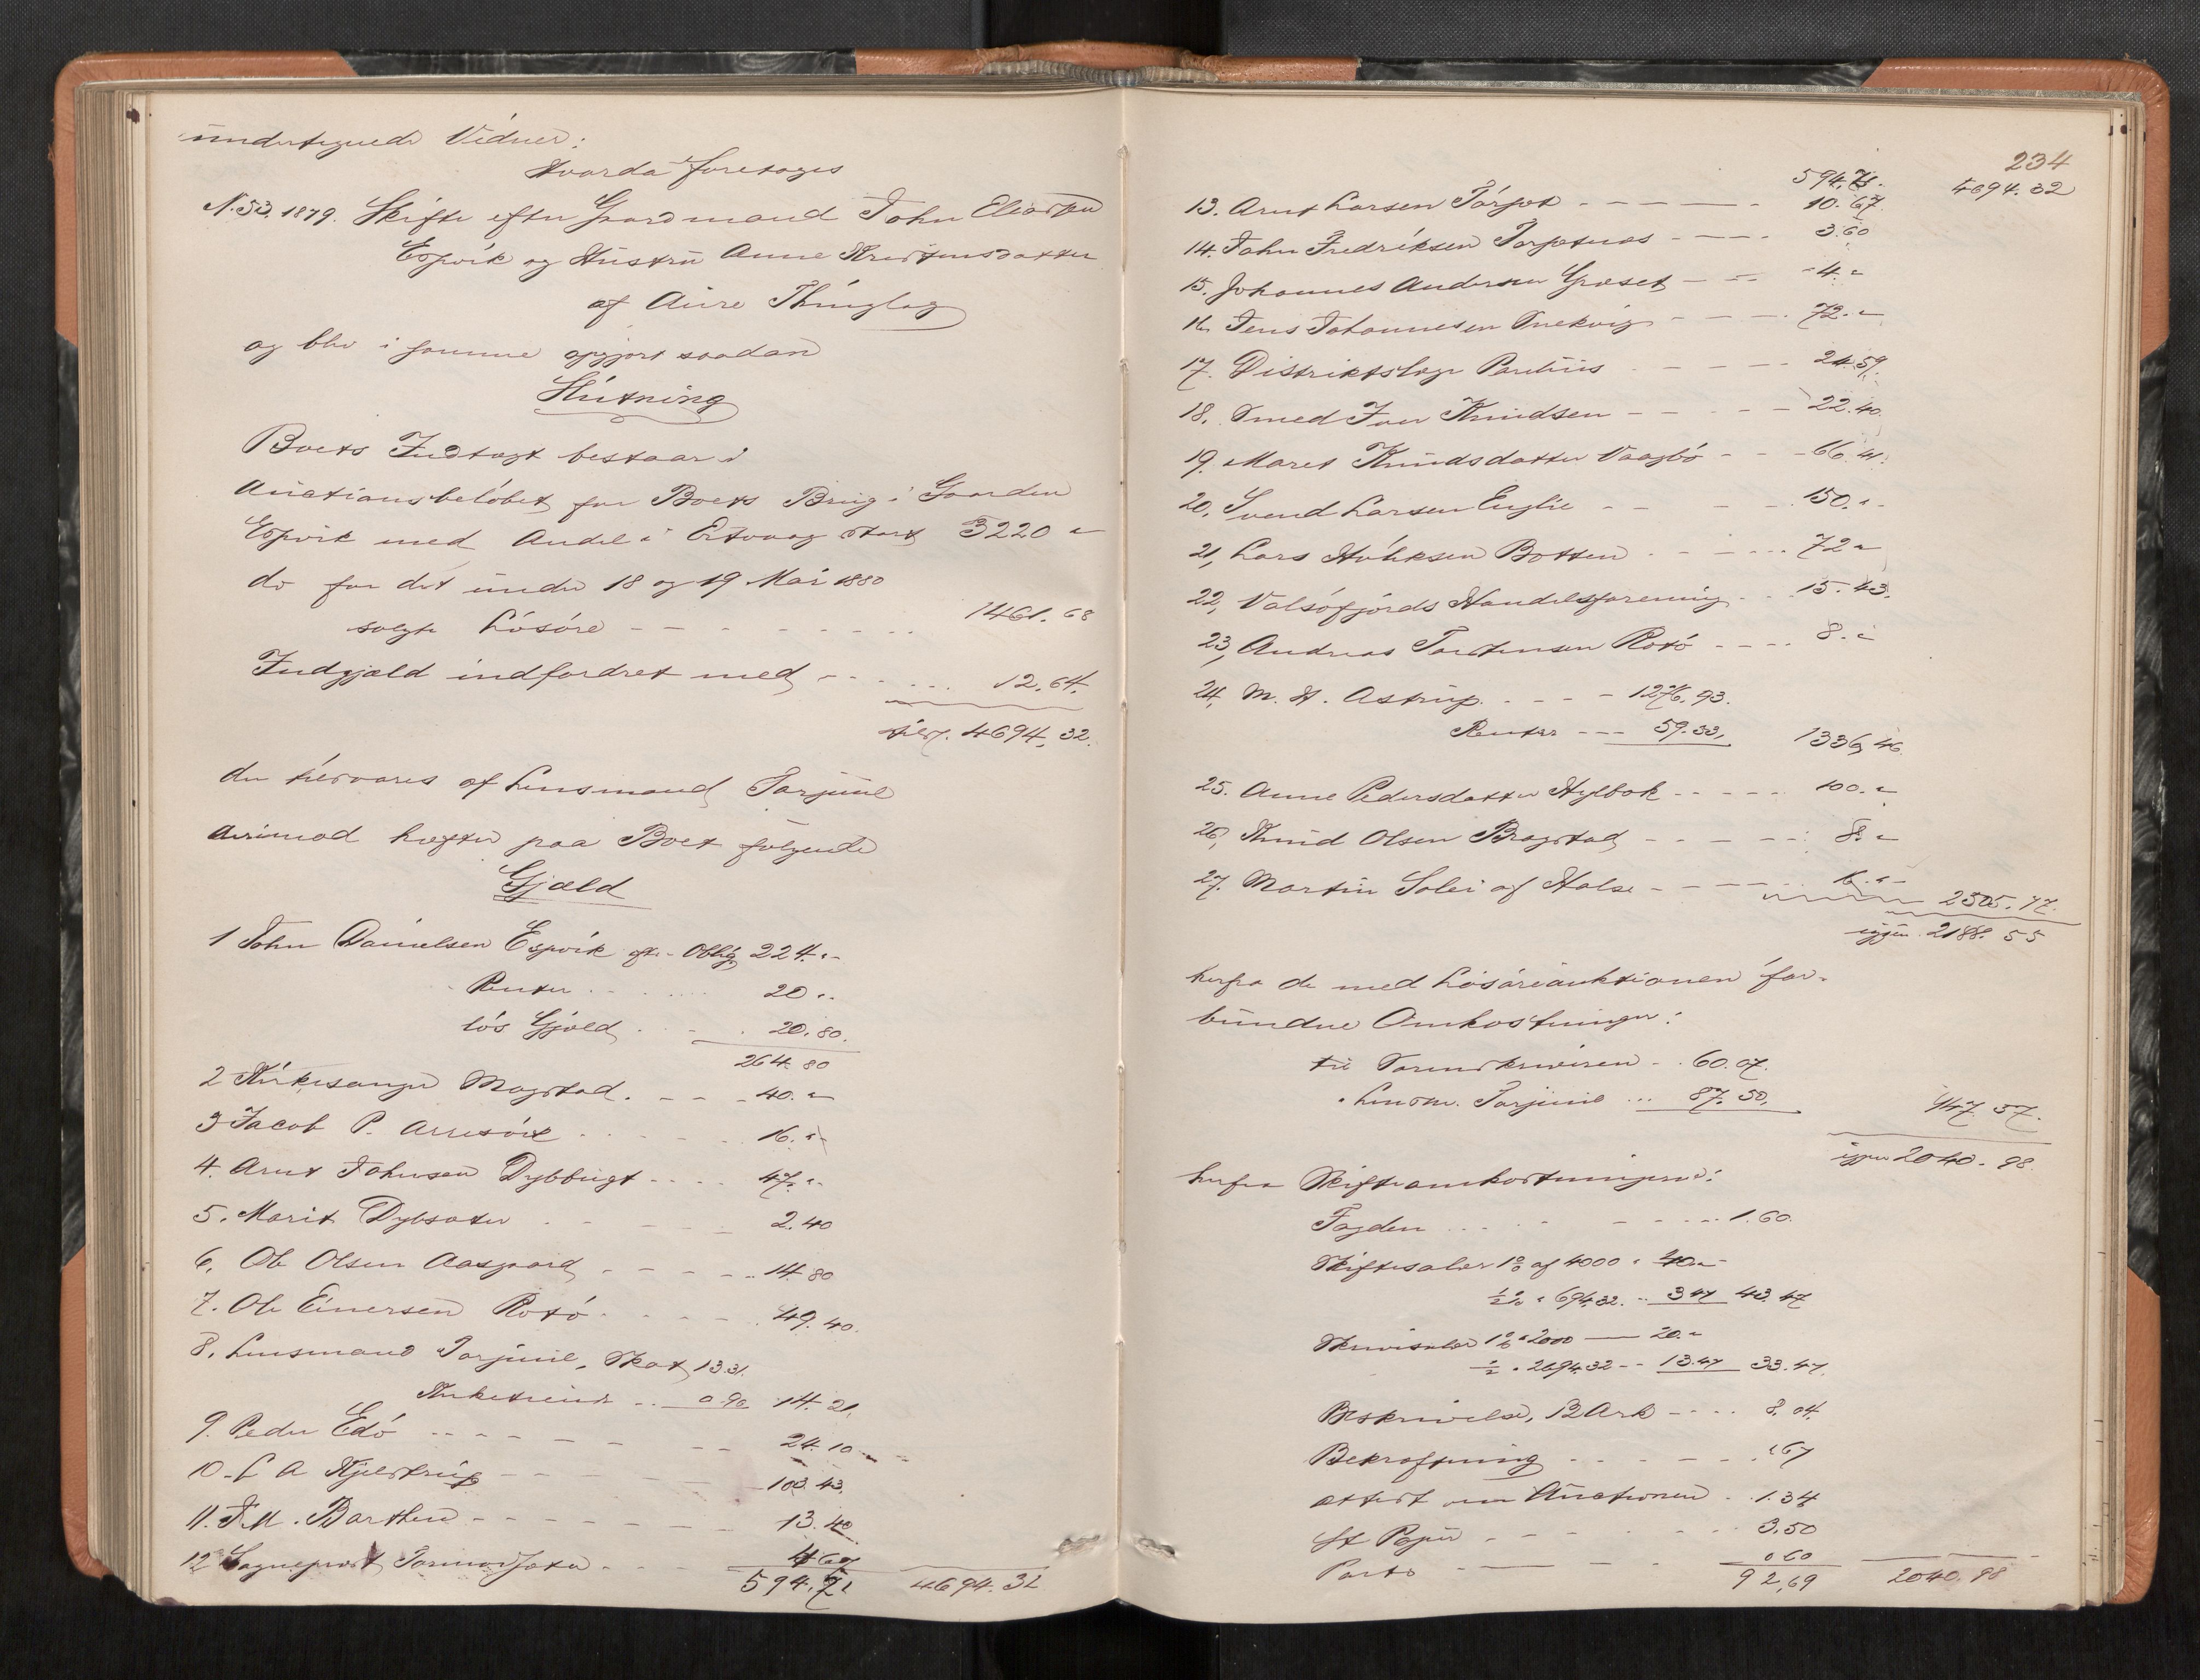 undertegnede Vidner:
Hvorda foretoges
N. 53. 1879. Skifte efter Gaardmand John Eliassen
Espvik og Hustru Anne Kristensdatter
af Aure Thinglag
og blev i samme opgjort saadan
Slutning
Boets Indtægt bestaar i
Auctionsbeløbet for Boets Brug i Gaarden
Espvik med Andel i Ertvaag stort 3220 "
do for det under 18 og 19 Mai 1880
solgte Løsøre - - - - - 1461. 68
Indgjæld indfordret med - - - 12. 64.
tils. 4694, 32.
der tilsvares af Lensmand Torjuul
derimod hefter paa Boet følgende
Gjæld
1 John Danielsen Espvik eft. Oblig 224. "
Renter . . . 20 "
løs Gjæld . . . 20. 80.
264. 80
2 Kirkesanger Magstad . - - 40. "
3 Jacob P. Arnesvik . . . 16. "
4. Arnt Johnsen Dybbugt - - - 47. "
5. Marit Dybsater - - - 2. 40
6. Ole Olsen Aasgaard - - - 14. 80
7. Ole Einersen Rotø - - - 49. 40.
8. Lensmand Torjuul, Skat 13.31.
Kirketiende . . 0.90 14. 21.
9. Peder Edø - - - 24. 10
10. L A Kjelstrup - - - 103. 43.
11. J. M. Barthen - - - 13. 40
12 Sogneprest Tormodsæter . . . 4 67
594. 71 4694. 32
234
594. 71. 4694. 32
13. Arnt Larsen Torjet - - - 10. 67.
14. John Fredriksen Torjetnes - - - 3. 60
15. Johannes Andersen Græset - - - 4. "
16. Jens Johannesen Snekvig - - - 72. "
17. Distriktslæge Parelius - - - 24. 59.
18. Smed Iver Knudsen - - - 22. 40.
19. Maret Knudsdatter Vaagbø - - - 66. 41.
20. Svend Larsen Englie - - - 150. "
21, Lars Høliksen Botten - - - 72 "
22, Valsøfjords Handelsforening . . 15. 43.
23, Andreas Torstensen Rotø - - - 8. "
24, M. H. Astrup. - - - 1276. 93.
Renter - - - 59. 33. 1336, 46.
25. Anne Pedersdatter Hylbak - - - 100. "
26, Knud Olsen Bragstad - - - 8. "
27. Martin Solei af Halse - - - 16. " 2505. 77.
igjen 2188. 55
herfra de med Løsøreauktionen for-
bundne Omkostninger:
til Sorenskriveren - . 60. 07.
" Lensm. Torjuul ... 87. 50. 147. 57.
igjen 2040. 98.
herfra Skifteomkostningerne:
Fogden . . . - - - 1. 60.
Skiftesalær 1% af 4000 " 40 "
½% " 694.32. " 3 47 43. 47
Skrivesalær 1% " 2000 — 20. "
½ " 2694.32 - - 13.47 33. 47.
Beskrivelse, 12 Ark - - - 8. 04.
Bekræftning - - - " 67
Attest om Auctionen . 1. 34
St Papir - - - 3. 50
Porto - - - 0 60
92, 69 2040. 98